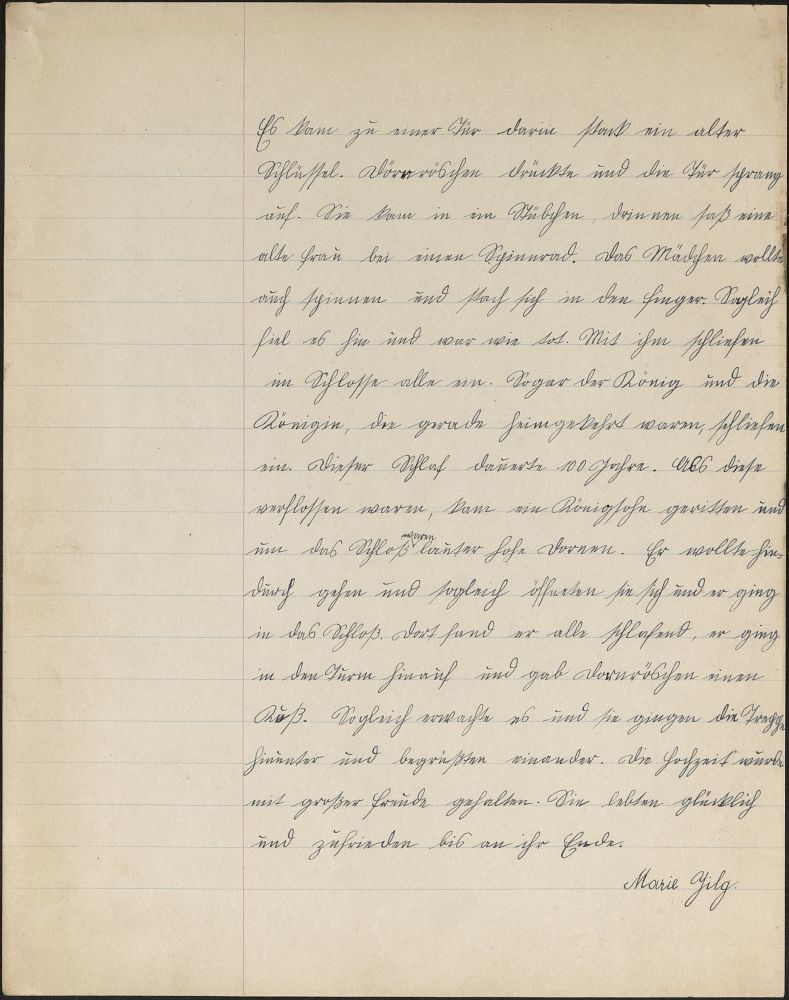 Es kam zu einer Tür darin stack ein alter
Schlüssel. Dörnröschen drückte und die Tür sprang
auf. Sie kam in ein Stübchen, drinnen saß eine
alte Frau bei einen Spinnrad. Das Mädchen wollte
auch spinnen und stach sich in den Finger. Sogleich
fiel es hin und war wie tot. Mit ihm schliefen
im Schlosse alle ein. Sogar der König und die
Königin, die gerade heimgekehrt waren, schliefen
ein. Dieser Schlaf dauerte 100 Jahre. Als diese
verflossen waren, kam ein Königsohn geritten und
um das Schloß waren lauter hohe Dornen. Er wollte hin-
durch gehen und sogleich öffneten sie sich und er ging
in das Schloß. Dort fand er alle schlafend, er ging
in den Turm hinauf und gab Dornröschen einen
Kuß. Sogleich erwachte es und sie gingen die Treppe
hinunter und begrüßten einander. Die Hochzeit wurde
mit großer Freude gehalten. Sie lebten glücklich
und zufrieden bis an ihr Ende.
Marie Jilg.